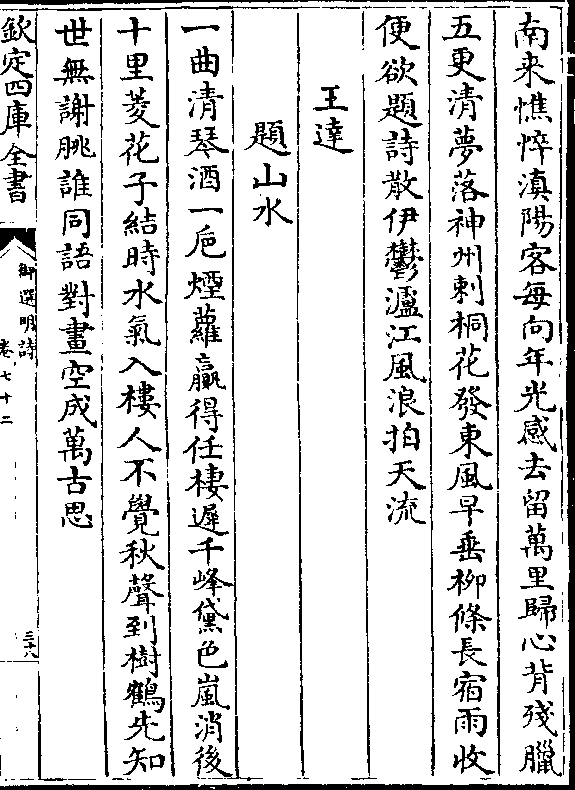 南来憔悴滇陽客每向年光感去留萬里歸心背殘臘
五更清夢落神州刺桐花發東風早垂柳條長宿雨收
便欲題詩散伊鬱瀘江風浪拍天流
王達
題山水
一曲清琴酒一巵煙蘿贏得任棲遲千峰黛色嵐消後
十里菱花子結時水氣入樓人不覺秋聲到樹鶴先知
世無謝朓誰同語對畫空成萬古思
欽定四庫全書
御選明詩
卷七十二
三十八